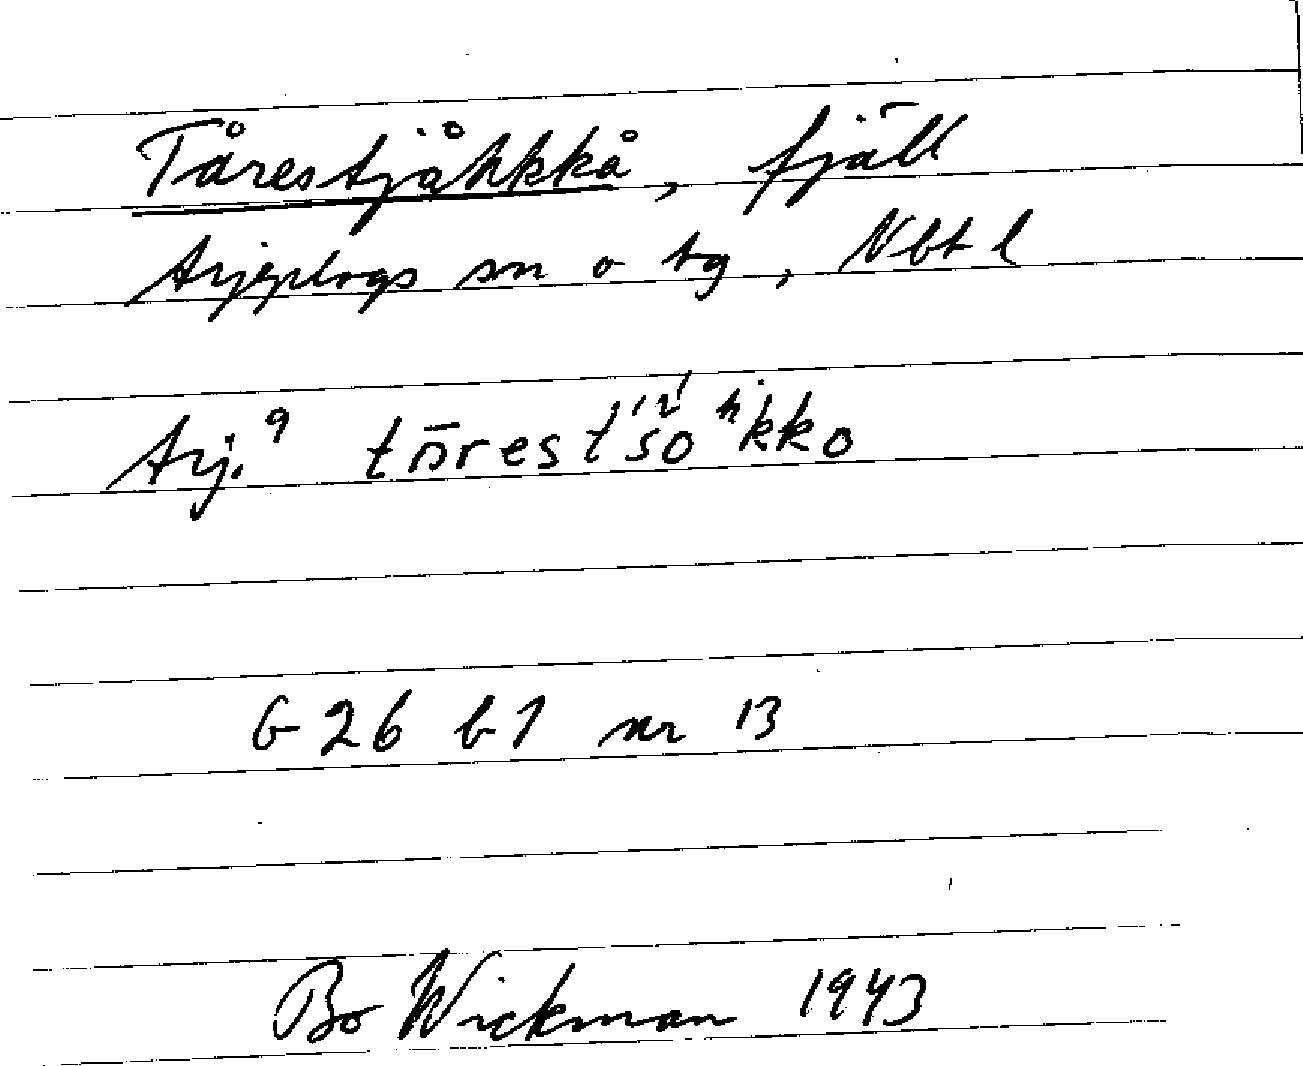 Tårestjåhkkå, fjäll
Arjeplogs sn o tg, Nbt l
Arj. 9 tōrest's'o ͪkko
G 26 b1 nr 13
Bo Wickman 1943